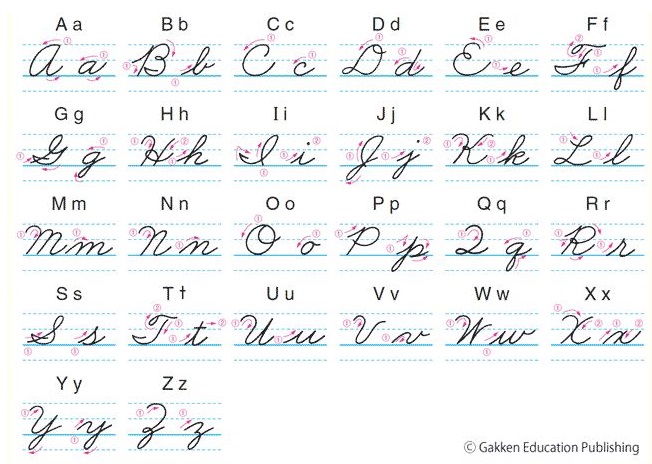 Aa Bb Cc Dd Ee Ff
A a B b C c D d E e F f
Gg Hh Ii Jj Kk Ll
G g H h I i J j K k L l
Mm Nn Oo Pp Qq Rr
M m N n O o P p Q q R r
Ss Tt Uu Vv Ww Xx
S s T t U u V v W w X x
Yy Zz
Y y Z z
© Gakken Education Publishing